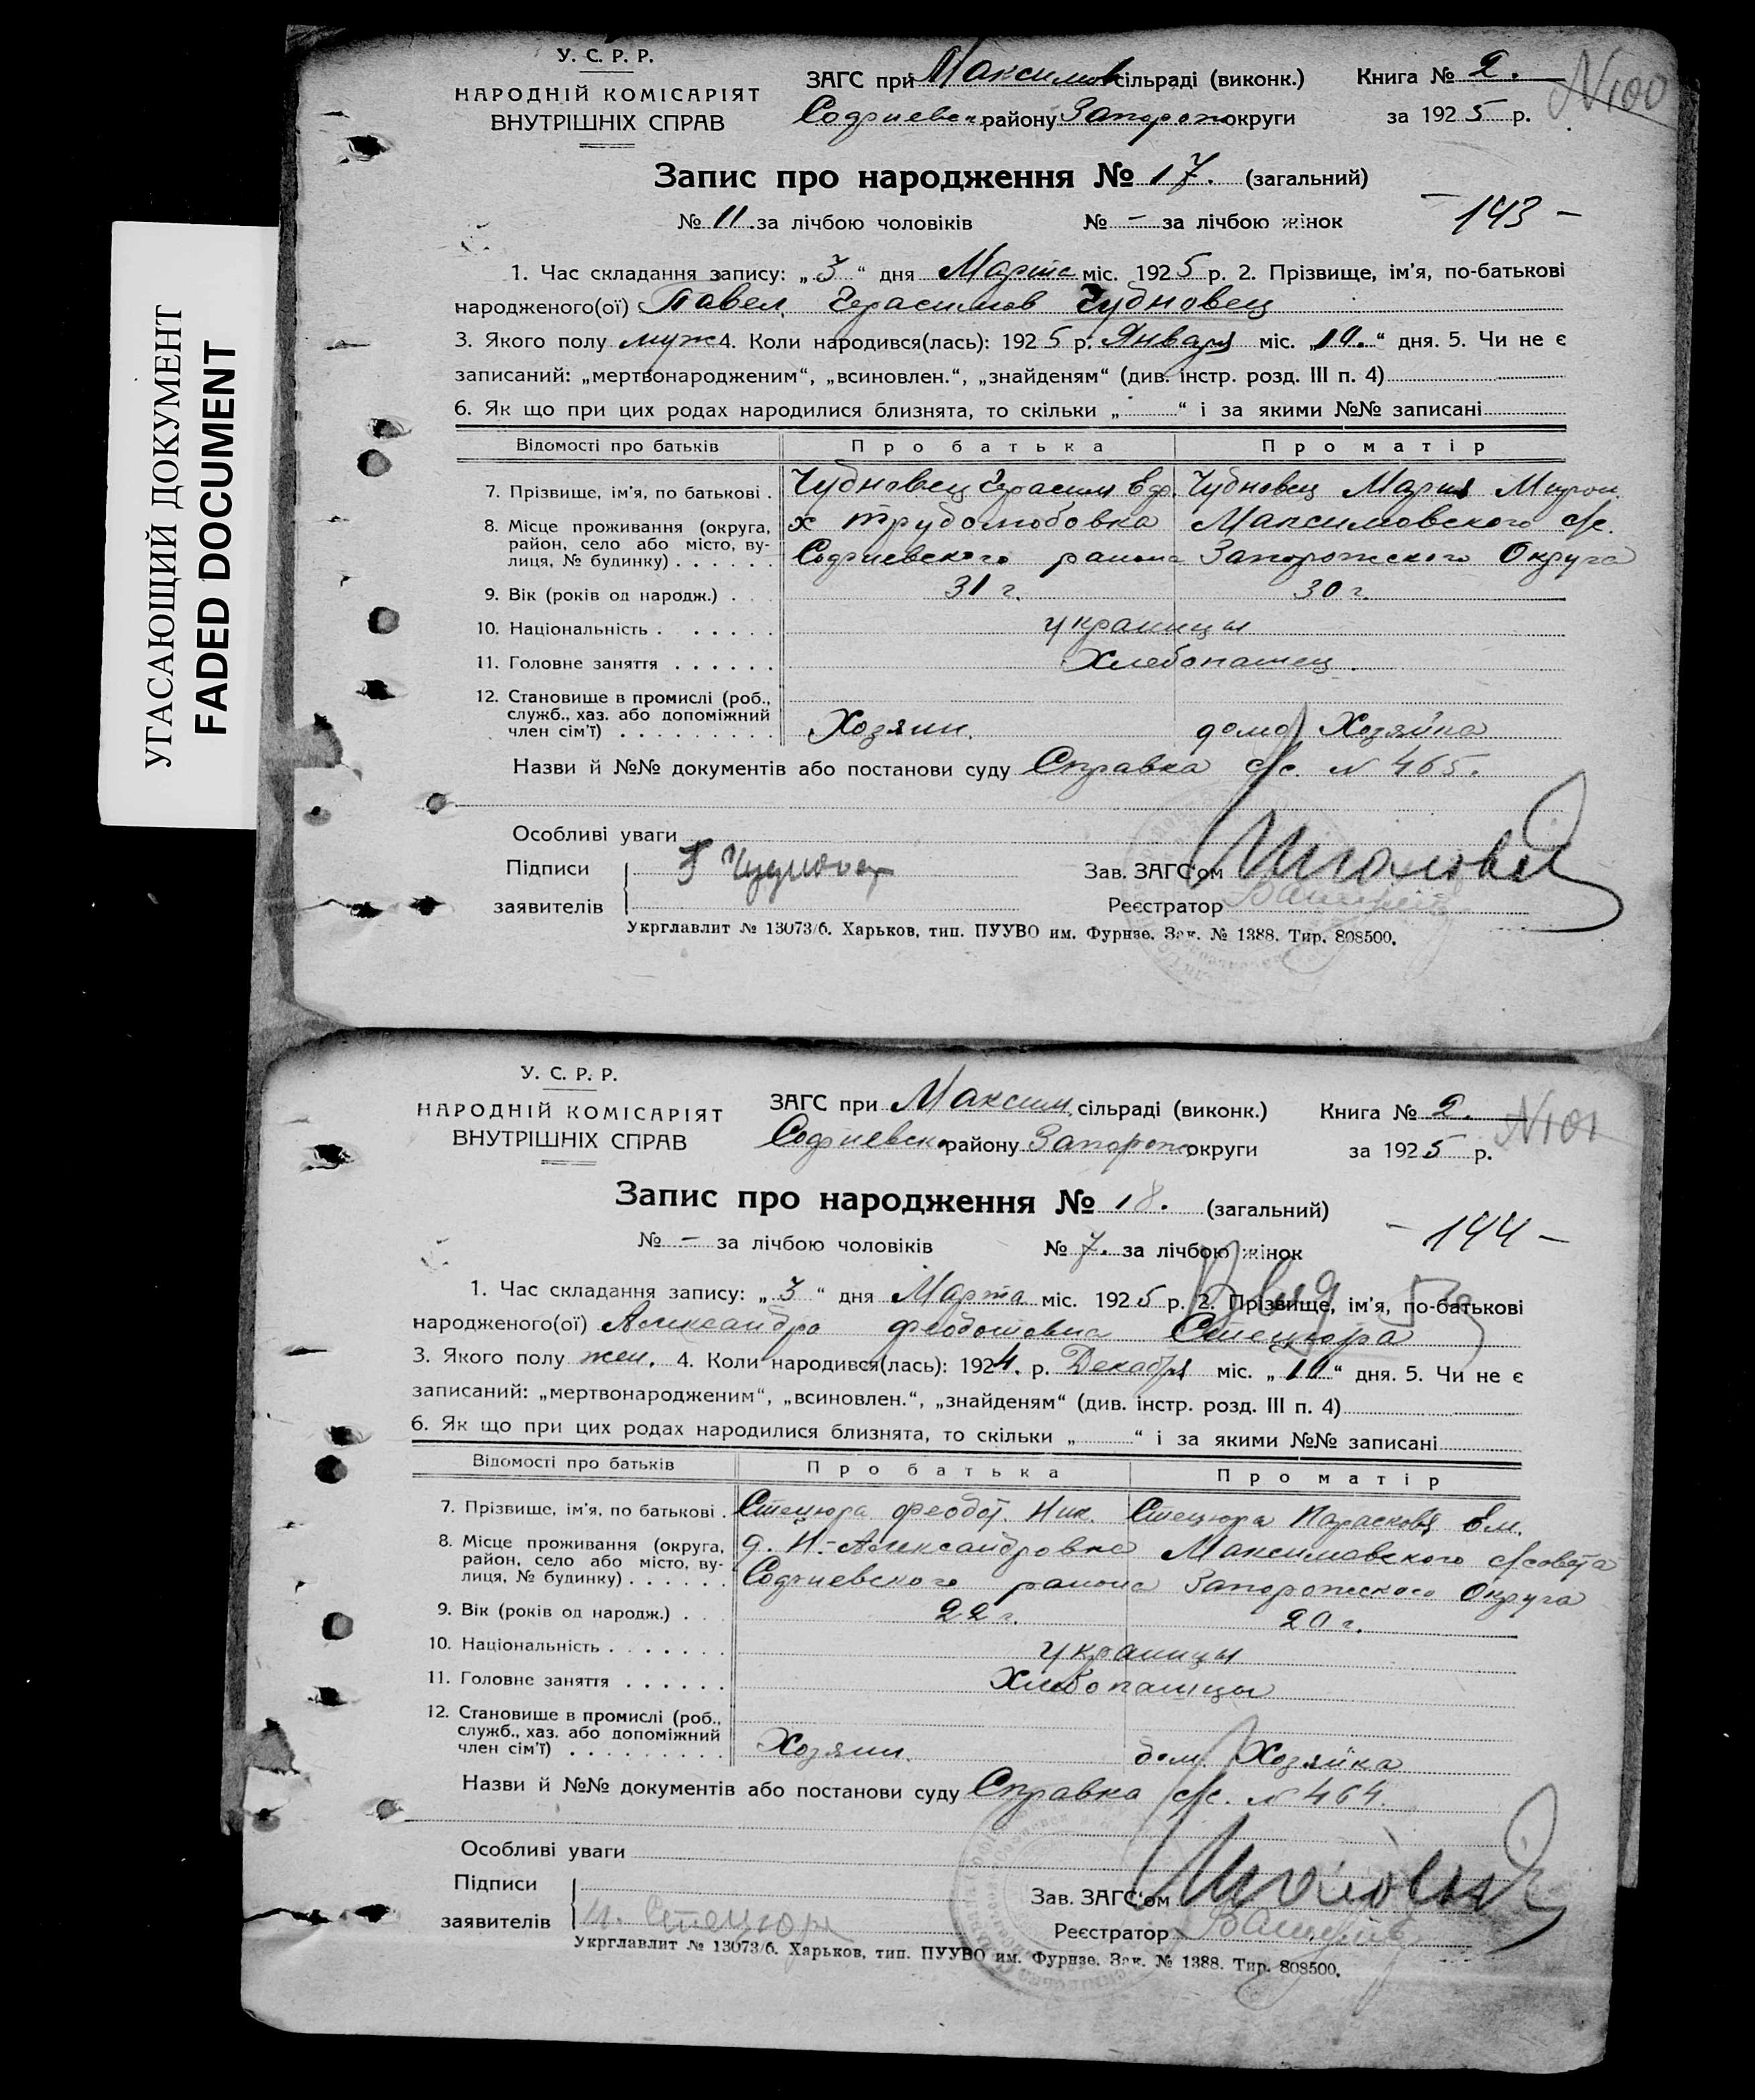 УГАСАЮЩИЙ ДОКУМЕНТ
FADED DOCUMENT
У. С. Р. Р.
НАРОДНІЙ КОМІСАРІЯТ
ВНУТРІШНІХ СПРАВ
ЗАГС при Максимов сільраді (виконк.) Книга № 2.
Софиевск району Запорож округи за 1925 р.
N100
Запис про народження № 17. (загальний)
№ 11. за лічбою чоловіків № – за лічбою жінок
– 143 –
1. Час складання запису: „3“ дня Марта міс. 1925 р. 2. Прізвище, ім'я, по-батькові
народженого(ої) Павел Герасимов Чубновец
3. Якого полу муж 4. Коли народився(лась): 1925 р. Января міс. „10.“ дня. 5. Чи не є
записаний: „мертвонародженим“, „всиновлен.“, „знайденям“ (див. інстр. розд. III п. 4)
6. Як що при цих родах народилися близнята, то скільки „ “ і за якими №№ записані
Відомості про батьків Про батька Про матір
7. Прізвище, ім'я, по батькові . Чубновец Герасим Еф. Чубновец Мария Мирон.
8. Місце проживання (округа, х Трудолюбовка Максимовского с/с.
район, село або місто, ву-
лиця, № будинку) . . . . . . Софиевского района Запорожского Округа
9. Вік (років од народж.) . . . 31 г. 30 г.
10. Національність . . . . . . украинцы
11. Головне заняття . . . . . . Хлебопашец.
12. Становище в промислі (роб.,
служб., хаз. або допоміжний
член сім'ї) . . . . . . . . . Хозяин. домо Хозяйка
Назви й №№ документів або постанови суду Справка с/с. N 465.
Особливі уваги
Підписи
заявителів
Зав. ЗАГС'ом
Реєстратор
Укрглавлит № 13073/6. Харьков, тип. ПУУВО им. Фурнзе. Зак. № 1388. Тир. 808500.
У. С. Р. Р.
НАРОДНІЙ КОМІСАРІЯТ
ВНУТРІШНІХ СПРАВ
ЗАГС при Максим. сільраді (виконк.) Книга № 2.
Софиевско району Запорож округи за 1925 р.
N101
Запис про народження № 18. (загальний)
№ – за лічбою чоловіків № 7. за лічбою жінок
– 144 –
1. Час складання запису: „3“ дня Марта міс. 1925 р. 2. Прізвище, ім'я, по-батькові
народженого(ої) Александра Феодотовна Стецюра
3. Якого полу жен. 4. Коли народився(лась): 1924. р. Декабря міс. „10“ дня. 5. Чи не є
записаний: „мертвонародженим“, „всиновлен.“, „знайденям“ (див. інстр. розд. III п. 4)
6. Як що при цих родах народилися близнята, то скільки „ “ і за якими №№ записані
Відомості про батьків Про батька Про матір
7. Прізвище, ім'я, по батькові . Стецюра Феодот Ник. Стецюра Парасковья Ем.
8. Місце проживання (округа, д. Н.-Александровка Максимовского с/совета
район, село або місто, ву-
лиця, № будинку) . . . . . . Софиевского района Запорожского Округа
9. Вік (років од народж.) . . . 22 г. 20 г.
10. Національність . . . . . . . украинцы
11. Головне заняття . . . . . . Хлебопашцы
12. Становище в промислі (роб.,
служб., хаз. або допоміжний
член сім'ї) . . . . . . . . . Хозяин. дом. Хозяйка
Назви й №№ документів або постанови суду Справка с/с. N 464.
Особливі уваги
Підписи
заявителів Стецюра
Зав. ЗАГС'ом
Реєстратор
Укрглавлит № 13073/6. Харьков, тип. ПУУВО им. Фурнзе. Зак. № 1388. Тир. 808500.